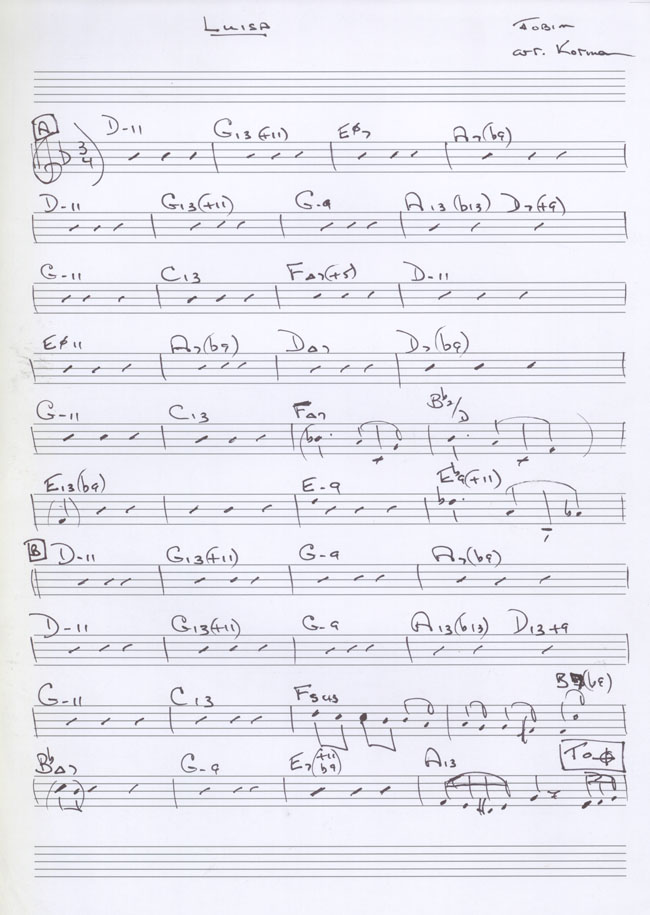 LUISA
JOBIM
arr. Korman
A
3
4
D-11 G13(+11) Eø7 A7(b9)
D-11 G13(+11) G-9 A13(b13) D7(+9)
G-11 C13 F△7(+5) D-11
Eø11 A7(b9) D△7 D7(b9)
G-11 C13 F△7 Bb7/D
E13(b9) E-9 Eb9(+11)
B D-11 G13(+11) G-9 A7(b9)
D-11 G13(+11) G-9 A13(b13) D13+9
G-11 C13 Fsus (b9)
Bb△7 G-9 E7(+11 b9) A13 To